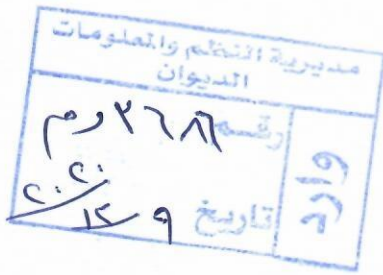 مديرية النظم والمعلومات
الديوان
وارد
رقم ٣٦٨٦ وم
تاريخ ٩/١٢/٢٠٢٠